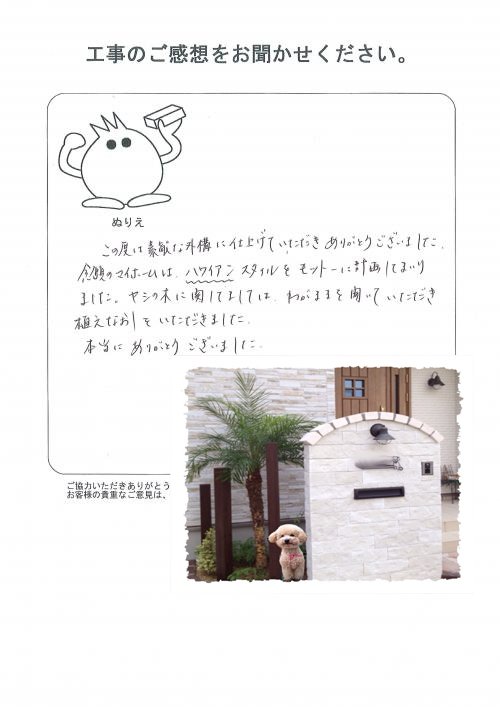 工事のご感想をお聞かせください。
ぬりえ
この度は素敵な外構に仕上げていただきありがとうございました。
念願のマイホームは、ハワイアンスタイルをモットーに計画してまいり
ました。ヤシの木に関してましては、わがままを聞いていただき
植えなおしをいただきました。
本当にありがとうございました。
ご協力いただきありがとう
お客様の貴重なご意見は、